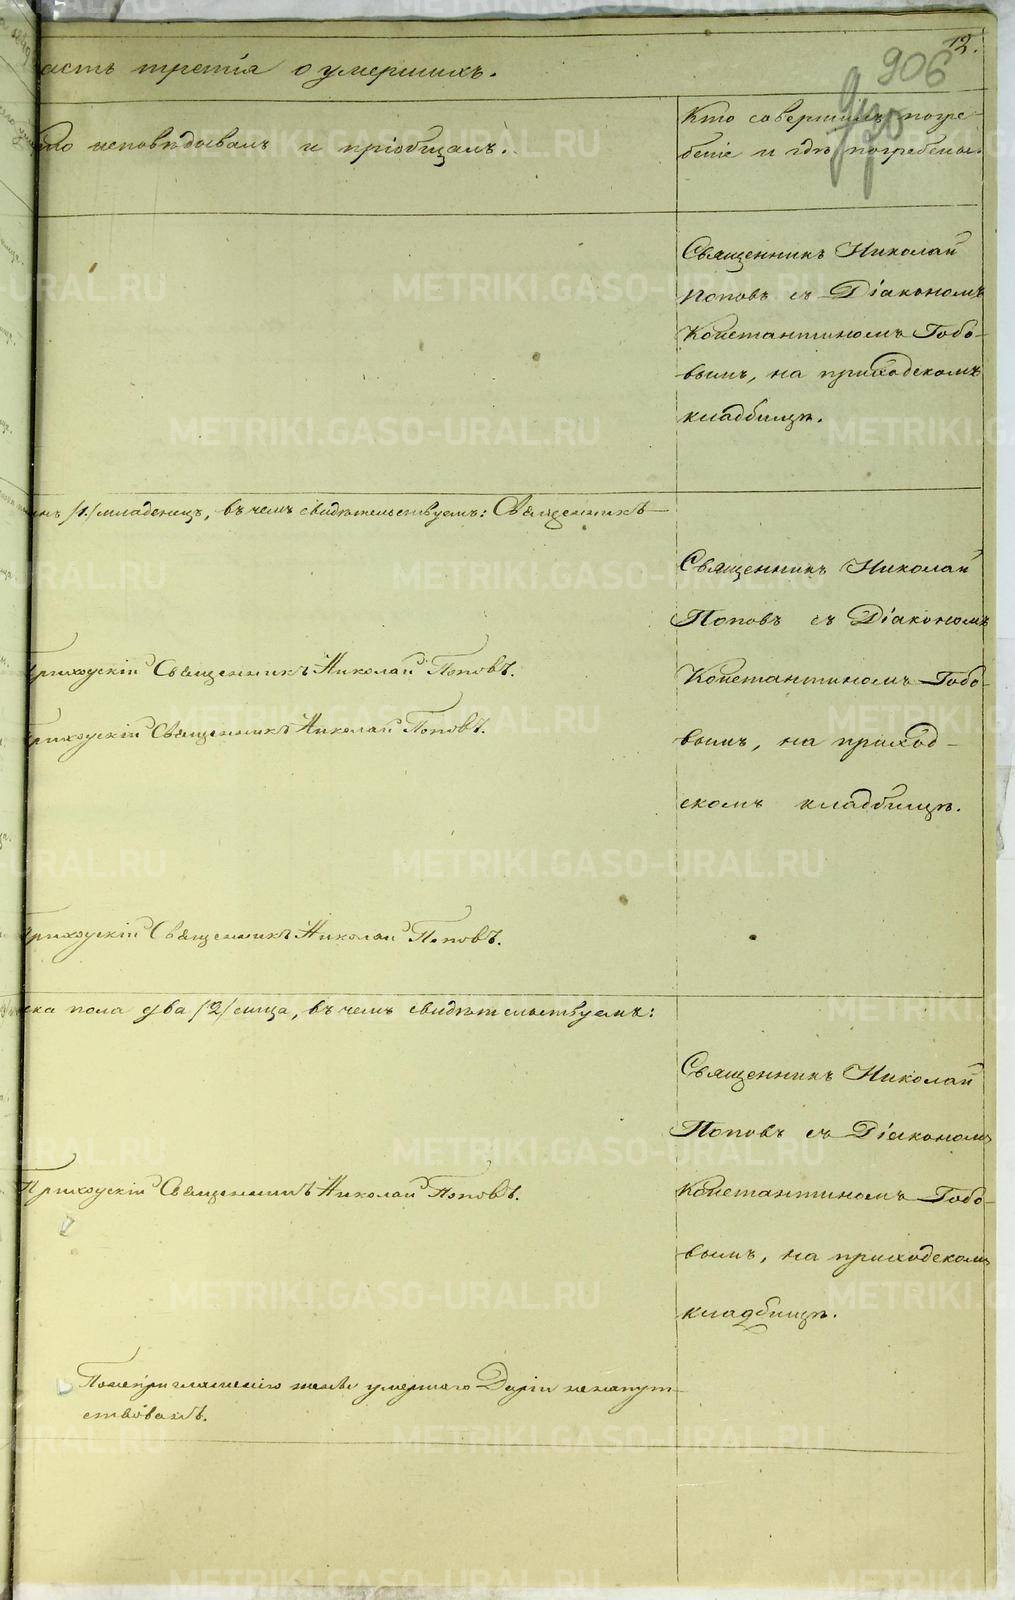 12.
906
930
асть третія о умершихъ.
то исповѣдывалъ и пріобщалъ.
Кто совершилъ погре-
беніе и гдѣ погребены.
Священникъ Николай
Поповъ съ Діакономъ
Констант​иномъ Гобо-
вымъ, на приходскомъ
кладбищѣ.
инъ /1/ младенецъ, въ чемъ свидѣтельствуемъ: Священникъ
Священникъ Николай
Поповъ съ Діакономъ
Константиномъ Гобо-
вымъ, на приход-
скомъ кладбищѣ.
Приходскій Священникъ Николай Поповъ.
Приходскій Священникъ Николай Поповъ.
Приходскій Священникъ Николай Поповъ.
ска пола два /2/ лица, въ чемъ свидѣтельствуемъ:
Священникъ Николай
Поповъ съ Діакономъ
Константиномъ Гобо-
вымъ, на приходскомъ
кладбищѣ.
Приходскій Священникъ Николай Поповъ.
По неприглашенію жены умершаго Даріи не напут-
ствованъ.
METRIKI.GASO-URAL.RU